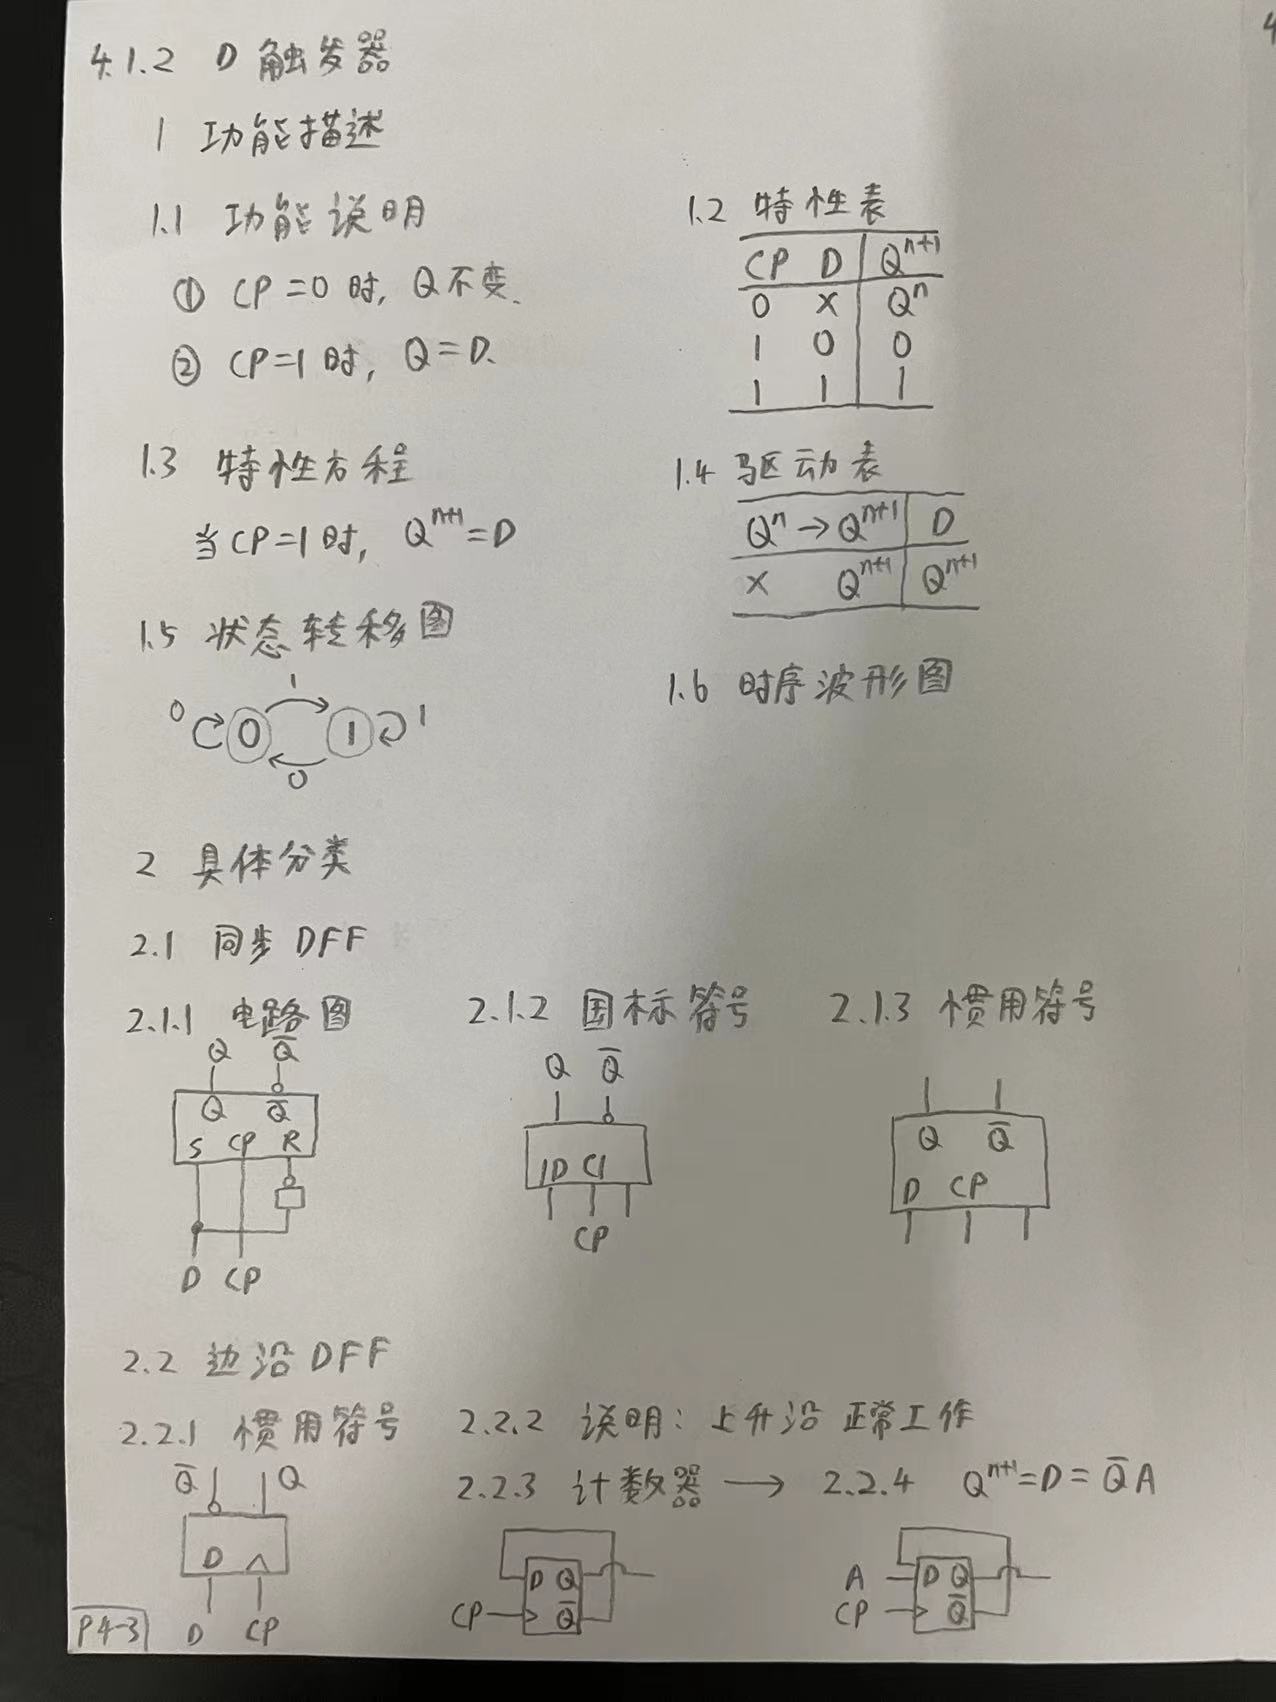 4.1.2 D 触发器
1 功能描述
1.1 功能说明
① CP=0 时, Q不变.
② CP=1 时, Q=D.
1.2 特性表
CP D Qⁿ⁺¹
0 × Qⁿ
1 0 0
1 1 1
1.3 特性方程
当CP=1时, Qⁿ⁺¹=D
1.4 驱动表
Qⁿ→Qⁿ⁺¹ D
× Qⁿ⁺¹ Qⁿ⁺¹
1.5 状态转移图
1
0 0 1 1
0
1.6 时序波形图
2 具体分类
2.1 同步DFF
2.1.1 电路图
Q Q̅
Q Q̅
S CP R
D CP
2.1.2 国标符号
Q Q̅
1D C1
CP
2.1.3 惯用符号
Q Q̅
D CP
2.2 边沿DFF
2.2.1 惯用符号
Q̅ Q
D
D CP
2.2.2 说明: 上升沿 正常工作
2.2.3 计数器 → 2.2.4 Qⁿ⁺¹=D=Q̅A
D Q
CP Q̅
A D Q
CP Q̅
P4-3
4